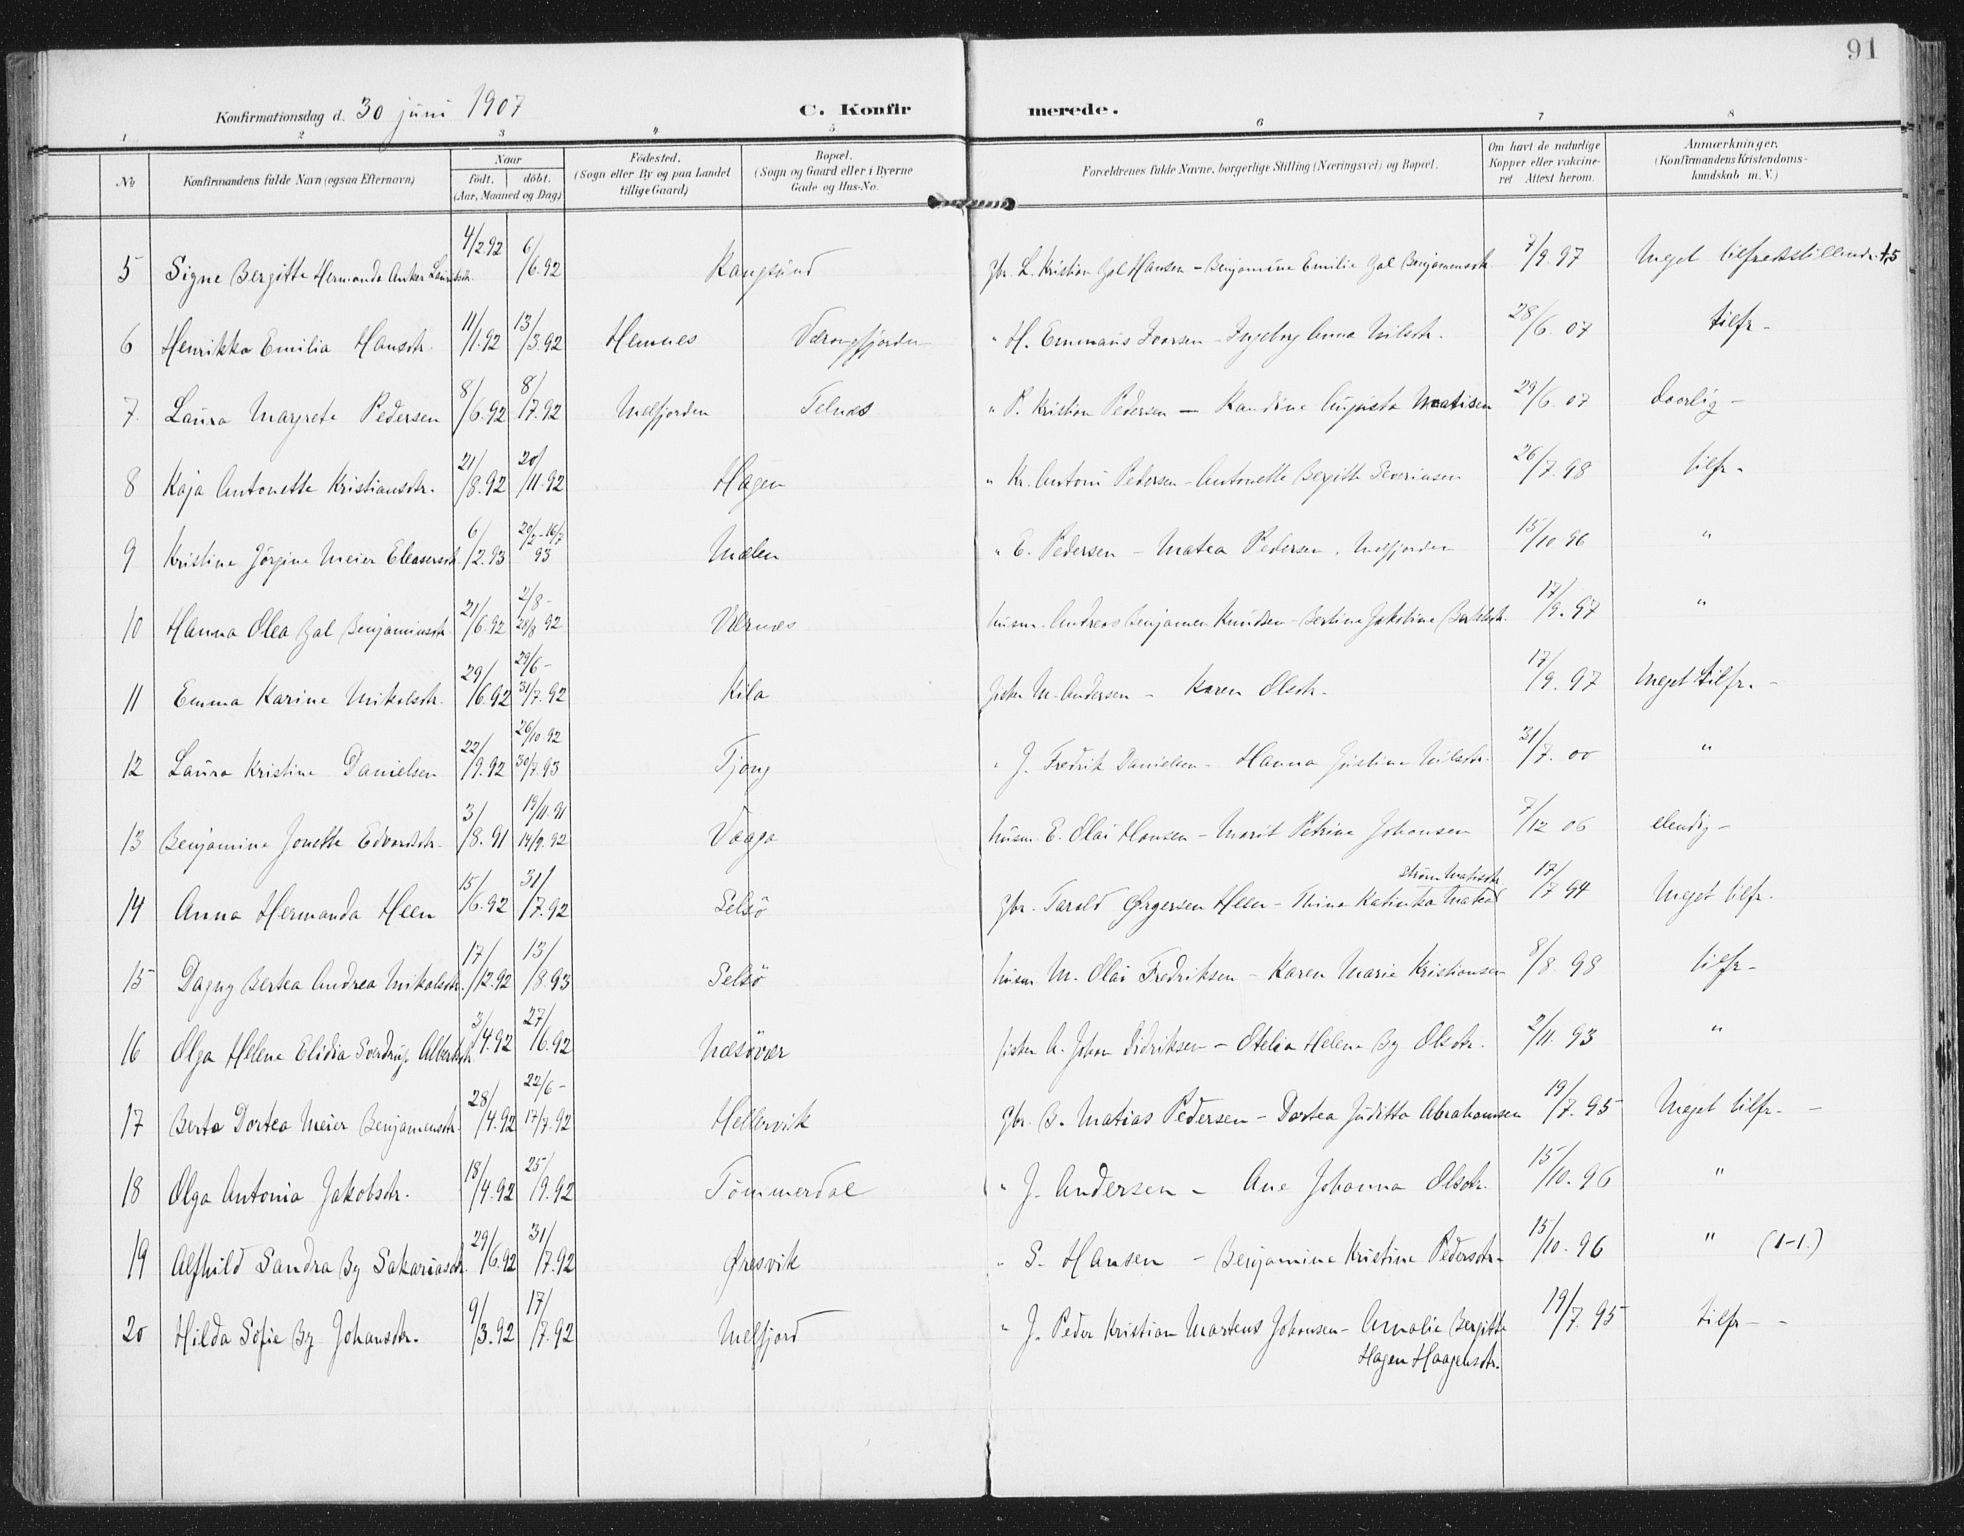 91
Konfirmationsdag d. 30 juni 1907 C. Konfirmerede.
1 2 3 4 5 6 7 8
No Konfirmandens fulde Navn (ogsaa Efternavn) Naar født. døbt. (Aar, Maaned og Dag) Fødested. (Sogn eller By og paa Landet tillige Gaard) Bopæl. (Sogn og Gaard eller i Byerne Gade og Hus-No. Forældrenes fulde Navne, borgerlige Stilling (Næringsvei) og Bopæl. Om havt de naturlige Kopper eller vakcineret Attest herom. Anmærkninger. (Konfirmandens Kristendomskundskab m. V.)
5 Signe Bergitte Hermanda Anker 4/2.92 6/6.92 Rangsund gbr. L. Kristian Zal Hansen - Benjamine Emilie Zal Benjaminsdtr. 7/9.97 Meget tilfredsstillende 1,5
6 Henrikka Emilia Hansdtr. 11/1.92 13/3.92 Hemnes Værangfjorden " H. Emmaus Ivarsen - Ingeborg Anna Nilsdtr. 28/6.07 tilfr.
7. Laura Margrete Pedersen 8/6.92 8/7.92 Melfjorden Telnæs " P. Kristian Pedersen - Kandine Augusta Matisen 29/6.07 daarlig -
8 Kaja Antonette Kristiansdtr. 21/8.92 20/11.92 Hagen " Kr. Antoni Pedersen - Antonette Bergitte Severinsen 26/7.98 tilfr.
9 Kristine Jörgine Meier Eleasersdtr. 6/2.93 20/2-16/7 93 Mælen " E. Pedersen - Matea Pedersen. Melfjorden 15/10 96 "
10 Hanna Olea Zal Benjaminsdtr. 21/6.92 2/8-28/8 92 Værnes husm. Andreas Benjamen Knudsen - Bertine Jakobine 17/9.97 "
11 Emma Karine Mikalsdtr. 29/6.92 29/6-31/7.92 Kila fisker M. Andersen - Karen Olsdtr. 17/9.97 Meget tilfr. -
12 Laura Kristine Danielsen 22/9.92 26/10.92 30/7.93 Tjong " J. Fredrik Danielsen - Hanna Justine Nilsdtr. 31/7.00 "
13 Benjamine Jonette Edvardsdtr. 3/8.91 19/11.91 14/9.92 Vaaga husm. E. Olai Hansen - Marit Petrine Johansen 7/12 06 elendig -
14 Anna Hermanda Heen 15/6.92 31/7.92 Selsö gbr. Tarald Ørgersen Heen - Thina Katinka 17/7 94 Meget tilfr.
15 Dagny Bertea Andrea Mikalsdtr. 17/12.92 13/8.93 Selsö husm M. Olai Fredriksen - Karen Marie Kristiansen 8/8.98 tilfr -
16 Olga Helene Elidia Sverdrup Albertsdtr. 3/4.92 27/6.92 Næsövær fisker A. Johan Didriksen - Otelia Helene By Olsdtr. 2/11.93 "
17 Berta Dortea Meier Benjamensdtr. 28/4.92 22/6-17/7.92 Hellervik gbr. B. Matias Pedersen - Dortea Juditta Abrahamsen 19/7.95 Meget tilfr. -
18 Olga Antonia Jakobsdtr. 18/4.92 25/9.92 Tömmerdal " J. Andersen - Ane Johanna Olsdtr. 15/10.96 "
19 Alfhild Sandra By Sakariasdtr. 29/6.92 31/7.92 Øresvik " S. Hansen - Benjamine Kristine Pedersdtr. 15/10.96 " (1-1.)
20 Hilda Sofie By Johansdtr. 9/3.92 17/7.92 Melfjord " J. Peder Kristian Martens Johansen - Amalie Bergitte 19/7.95 tilfr - -
Hagen Haagensdtr.